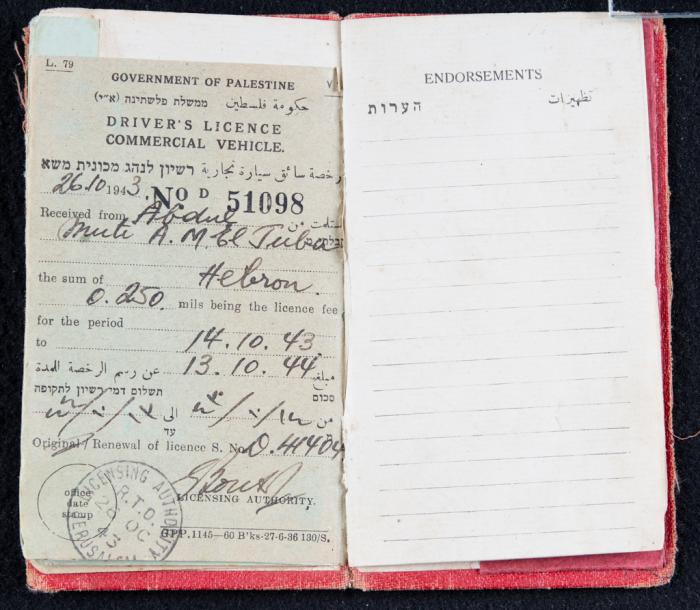 L. 79
GOVERNMENT OF PALESTINE
حكومة فلسطين ממשלת פלשתינה (א״י)
DRIVER'S LICENCE
COMMERCIAL VEHICLE.
רשיון לנהג מכונית משא رخصة سائق سيارة تجارية
26.10 1943. No D 51098
Received from Abdul
A. M El
Hebron.
the sum of
0.250 mils being the licence fee
for the period 14.10.43.
to 13.10.44
مبلغ عن رسم الرخصة المدة
סכום תשלום דמי רשיון לתקופה
من الى
עד
Original / Renewal of licence S. No D.41404
LICENSING AUTHORITY.
office
date
stamp
LICENSING AUTHORITY
R.T.O.
26 OC
43
JERUSALEM
GPP.1145—60 B'ks-27-6-36 130/S.
ENDORSEMENTS
הערות تظهيرات